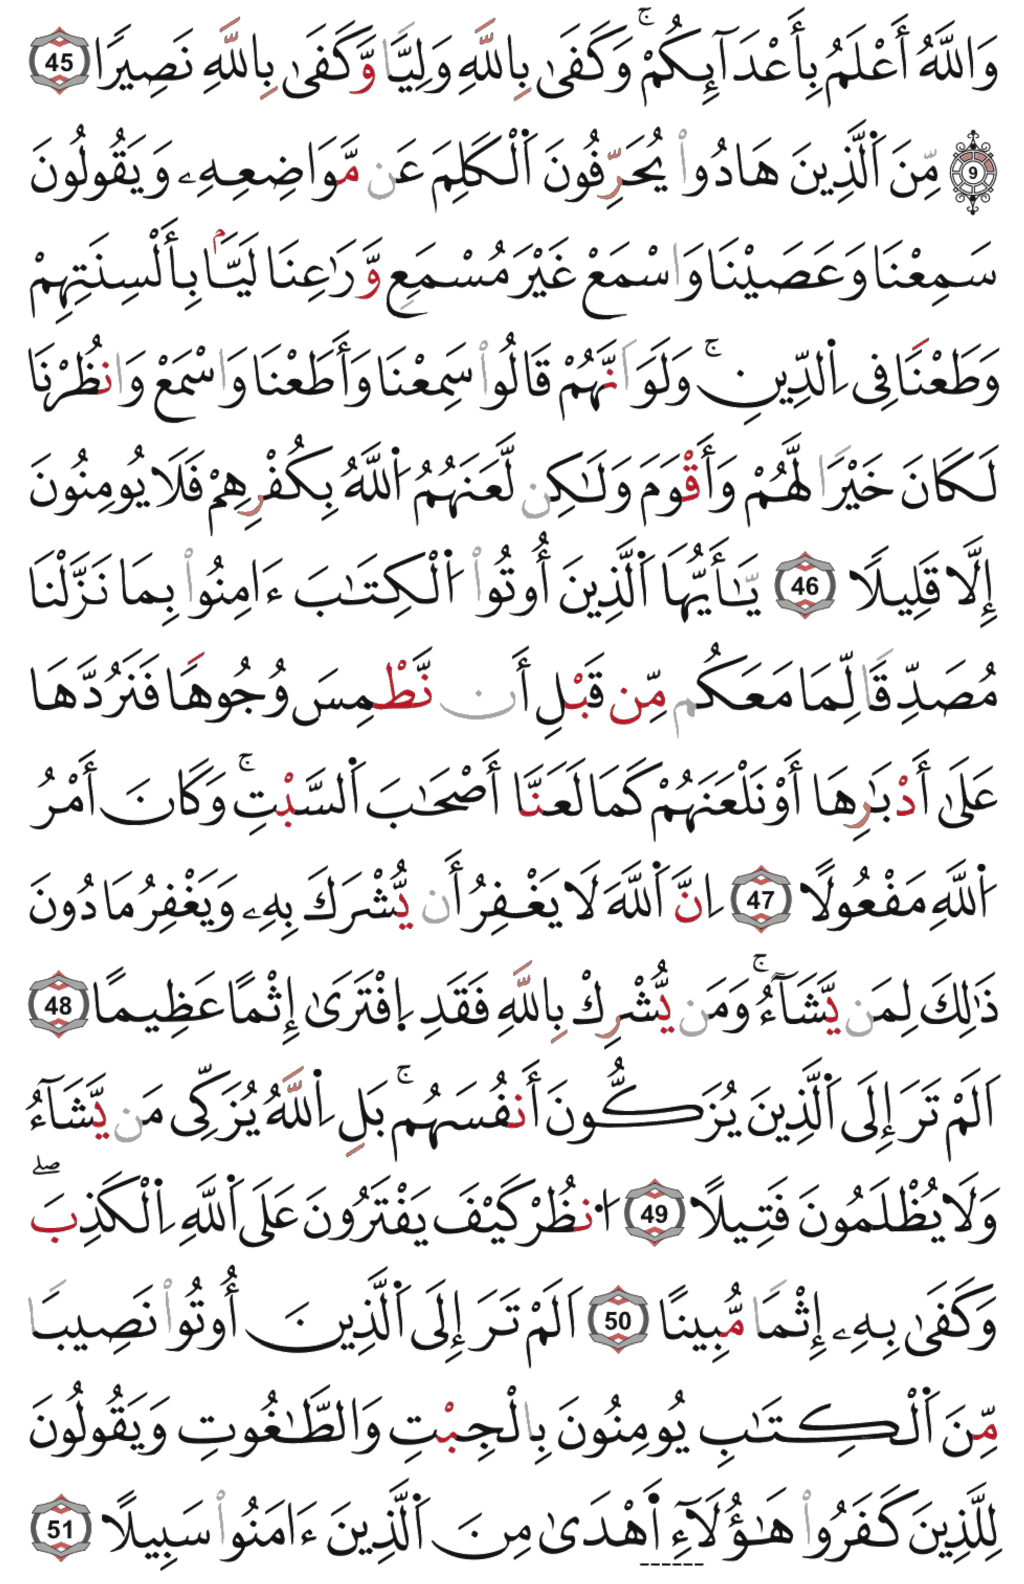 وَاللَّهُ أَعْلَمُ بِأَعْدَآئِكُمْۚ وَكَفَىٰ بِاللَّهِ وَلِيًّا وَّكَفَىٰ بِاللَّهِ نَصِيرًا 45
9 مِّنَ ٱلَّذِينَ هَادُواْ يُحَرِّفُونَ ٱلْكَلِمَ عَن مَّوَاضِعِهِۦ وَيَقُولُونَ
سَمِعْنَا وَعَصَيْنَا وَاسْمَعْ غَيْرَ مُسْمَعٍ وَّرَٰعِنَا لَيَّۢا بِأَلْسِنَتِهِمْ
وَطَعْنًا فِى اِ۬لدِّينِۚ وَلَوَ اَنَّهُمْ قَالُواْ سَمِعْنَا وَأَطَعْنَا وَاسْمَعْ وَانظُرْنَا
لَكَانَ خَيْرًا لَّهُمْ وَأَقْوَمَ وَلَٰكِن لَّعَنَهُمُ اُ۬للَّهُ بِكُفْرِهِمْ فَلَا يُومِنُونَ
إِلَّا قَلِيلًا 46 يَّٰأَيُّهَا ٱلَّذِينَ أُوتُواْ اُ۬لْكِتَٰبَ ءَامِنُواْ بِمَا نَزَّلْنَا
مُصَدِّقًا لِّمَا مَعَكُم مِّن قَبْلِ أَن نَّطْمِسَ وُجُوهًا فَنَرُدَّهَا
عَلَىٰ أَدْبَٰرِهَا أَوْ نَلْعَنَهُمْ كَمَا لَعَنَّا أَصْحَٰبَ ٱلسَّبْتِۚ وَكَانَ أَمْرُ
اُ۬للَّهِ مَفْعُولًا 47 اِنَّ ٱللَّهَ لَا يَغْفِرُ أَن يُّشْرَكَ بِهِۦ وَيَغْفِرُ مَا دُونَ
ذَٰلِكَ لِمَن يَّشَآءُۚ وَمَن يُّشْرِكْ بِاللَّهِ فَقَدِ اِ۪فْتَرَىٰ إِثْمًا عَظِيمًا 48
اَلَمْ تَرَ إِلَى ٱلَّذِينَ يُزَكُّونَ أَنفُسَهُمۚ بَلِ اِ۬للَّهُ يُزَكِّى مَن يَّشَآءُ
وَلَا يُظْلَمُونَ فَتِيلًا 49 اُ۟نظُرْ كَيْفَ يَفْتَرُونَ عَلَى ٱللَّهِ اِ۬لْكَذِبَۖ
وَكَفَىٰ بِهِۦ إِثْمًا مُّبِينًا 50 اَلَمْ تَرَ إِلَى ٱلَّذِينَ أُوتُواْ نَصِيبًا
مِّنَ ٱلْكِتَٰبِ يُومِنُونَ بِالْجِبْتِ وَالطَّٰغُوتِ وَيَقُولُونَ
لِلَّذِينَ كَفَرُواْ هَٰؤُلَآءِ اَ۬هْدَىٰ مِنَ ٱلَّذِينَ ءَامَنُواْ سَبِيلًا 51